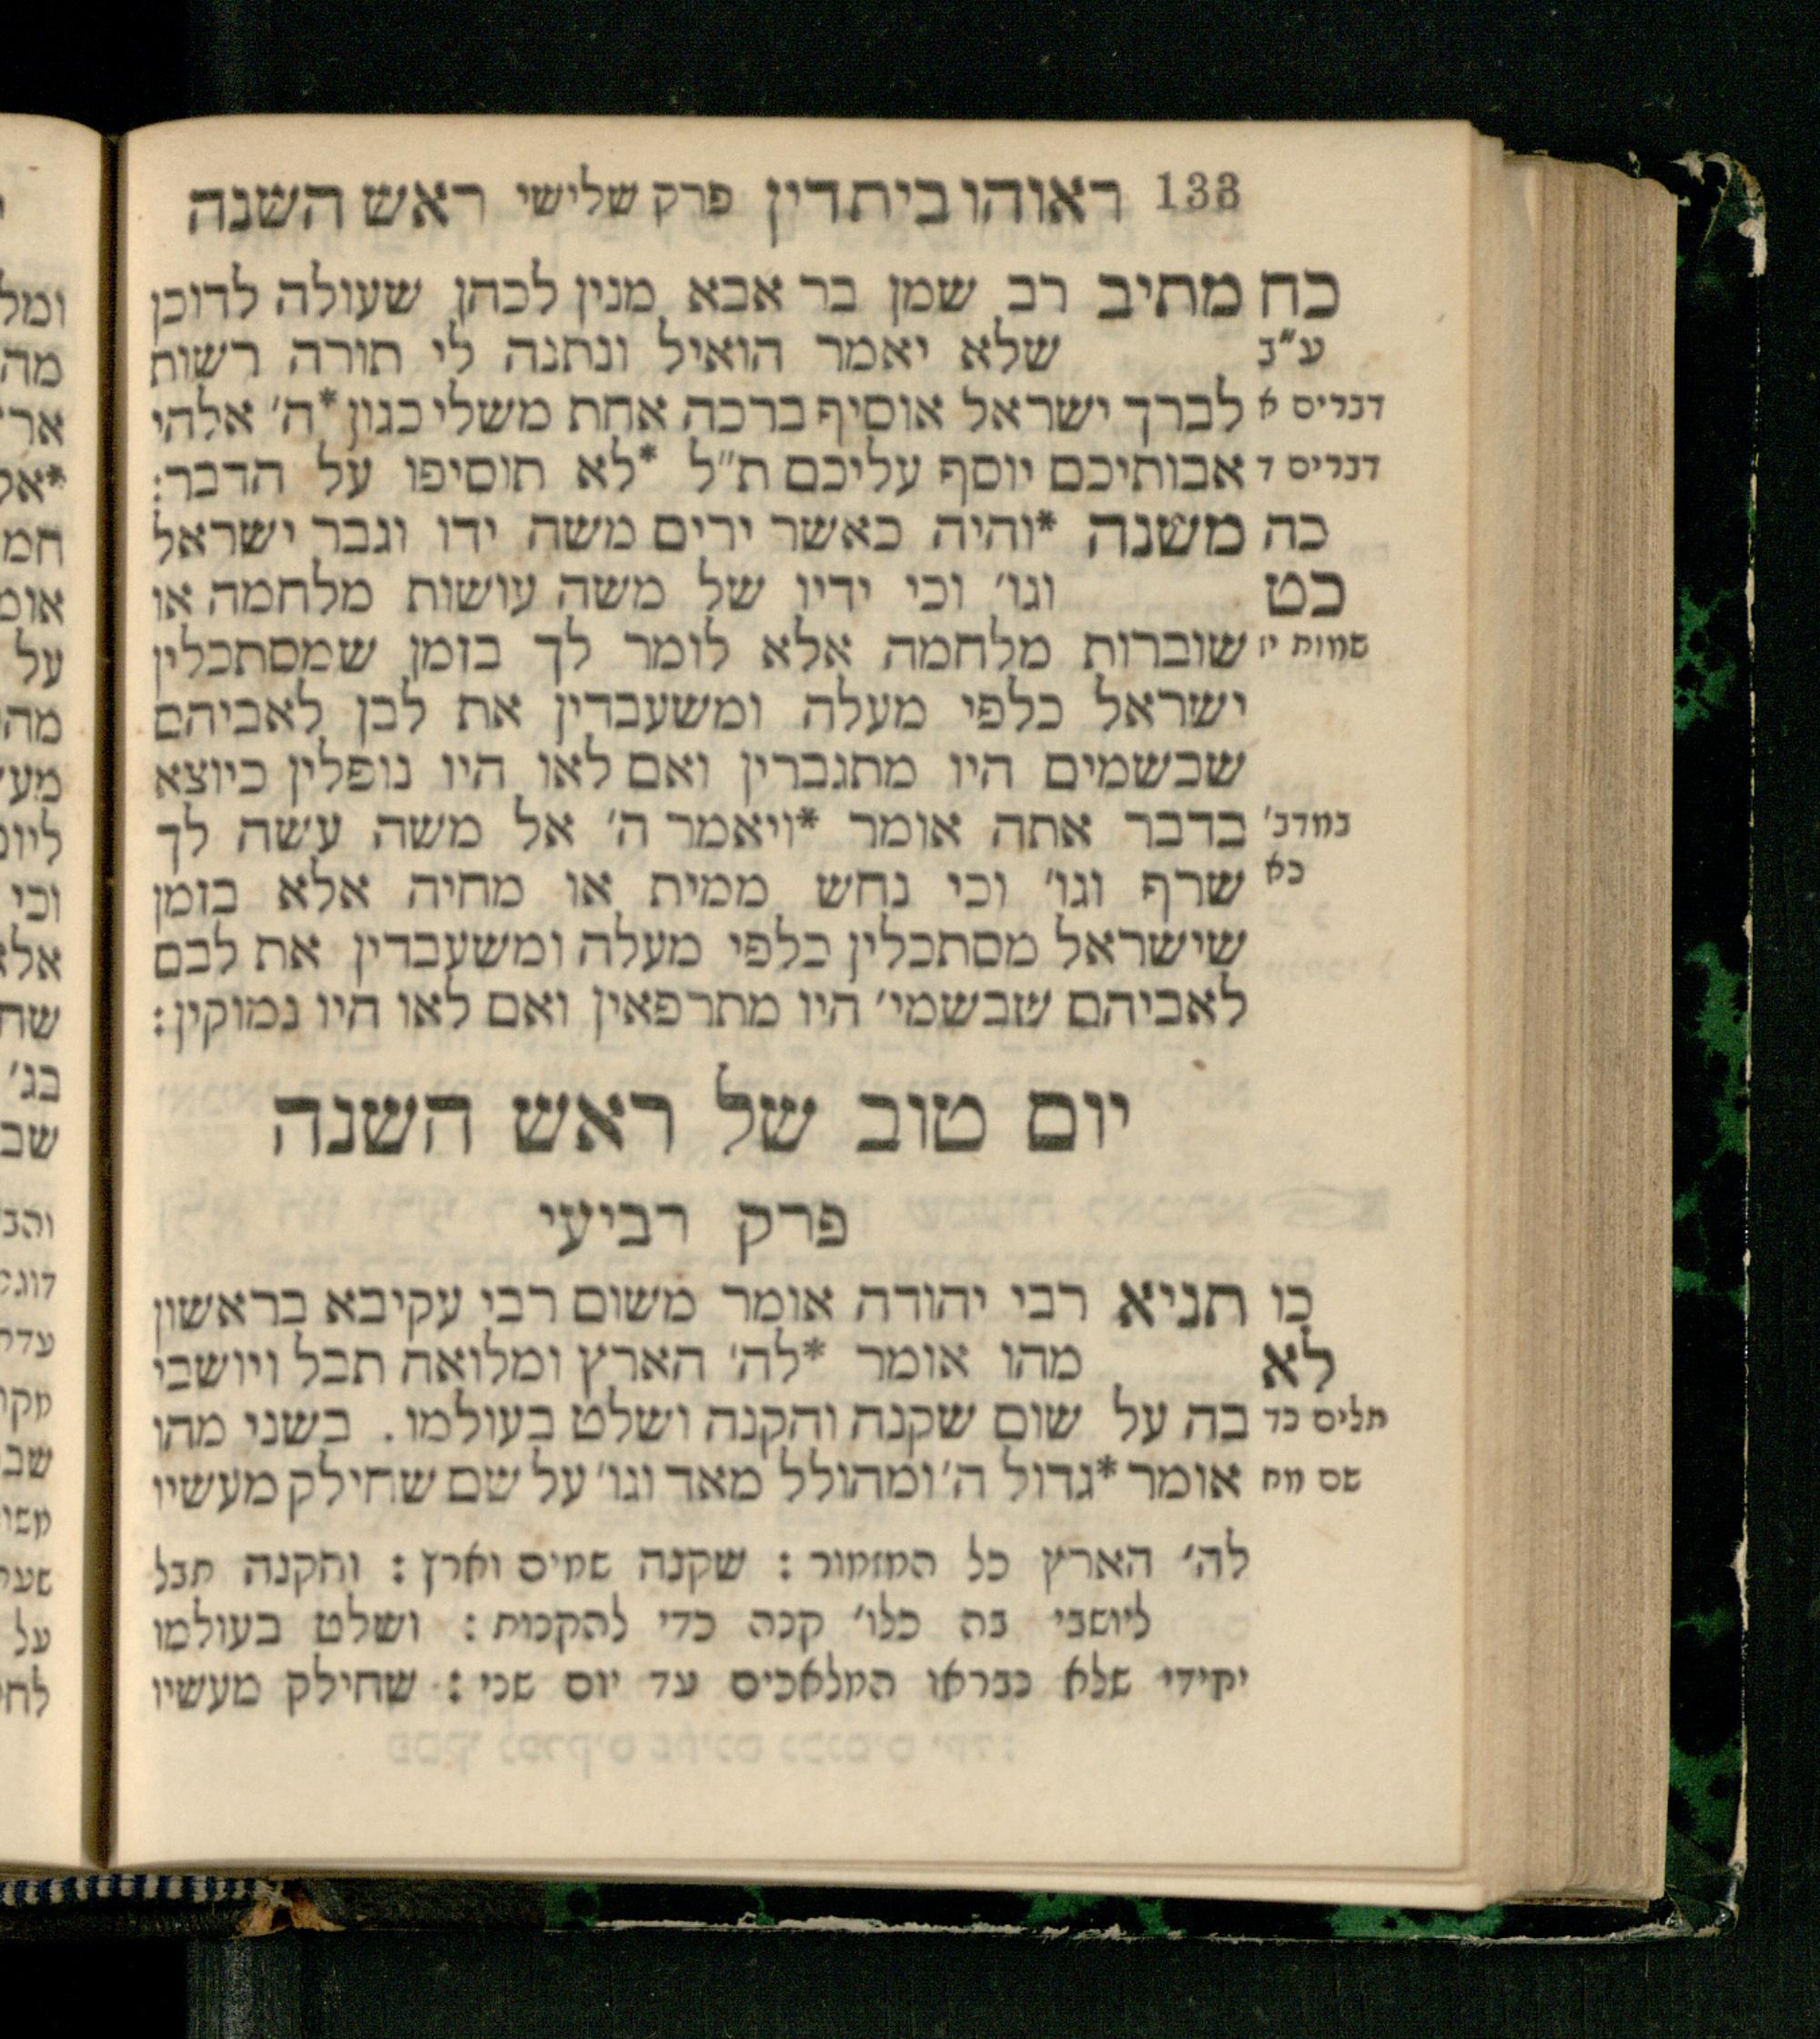 133 ראוהו בית דין פרק שלישי ראש השנה
כח מתיב רב שמן בר אבא מנין לכהן שעולה לדוכן
ע"ב שלא יאמר הואיל ונתנה לי תורה רשות
דברים א לברך ישראל אוסיף ברכה אחת משלי כגון *ה' אלהי
דברים ד אבותיכם יוסף עליכם ת"ל *לא תוסיפו על הדבר:
כה משנה *והיה כאשר ירים משה ידו וגבר ישראל
כט וגו' וכי ידיו של משה עושות מלחמה או
שמות יז שוברות מלחמה אלא לומר לך בזמן שמסתכלין
ישראל כלפי מעלה ומשעבדין את לבן לאביהם
שבשמים היו מתגברין ואם לאו היו נופלין כיוצא
במדב' בדבר אתה אומר *ויאמר ה' אל משה עשה לך
כא שרף וגו' וכי נחש ממית או מחיה אלא בזמן
שישראל מסתכלין כלפי מעלה ומשעבדין את לבם
לאביהם שבשמי' היו מתרפאין ואם לאו היו נמוקין:
יום טוב של ראש השנה
פרק רביעי
כו תניא רבי יהודה אומר משום רבי עקיבא בראשון
לא מהו אומר *לה' הארץ ומלואה תבל ויושבי
תלים כד בה על שום שקנה והקנה ושלט בעולמו. בשני מהו
שם מח אומר *גדול ה' ומהולל מאד וגו' על שם שחילק מעשיו
לה' הארץ כל המזמור: שקנה שמים וארץ: והקנה תבל
ליושבי בה כלו' קנה כדי להקנות: ושלט בעולמו
יחידי שלא נבראו המלאכים עד יום שני: שחילק מעשיו